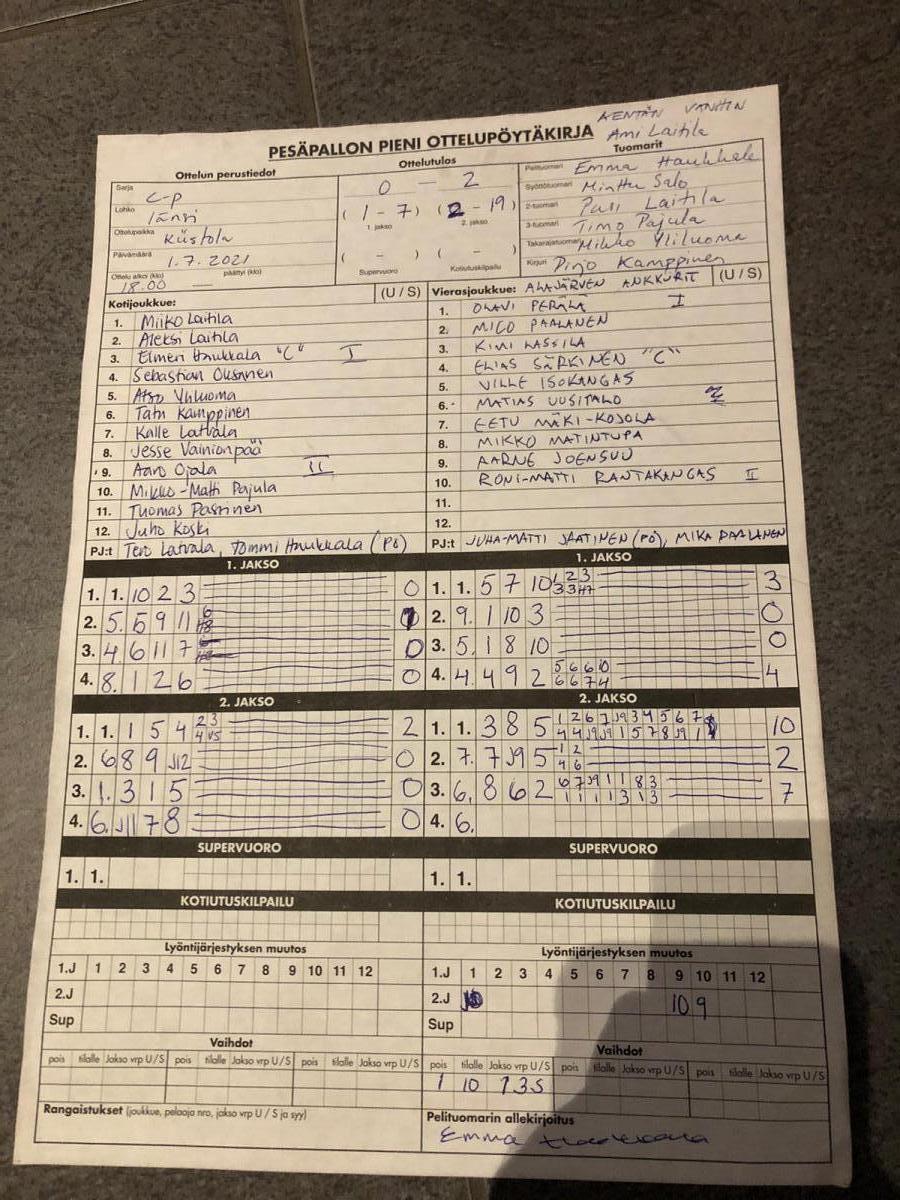 KENTÄN VANHIN
Ami Laitila
PESÄPALLON PIENI OTTELUPÖYTÄKIRJA
Ottelun perustiedot
Sarja C-p
Lohko länsi
Ottelupaikka Kiistola
Päivämäärä 1.7.2021
Ottelu alkoi (klo) päättyi (klo)
18.00 —
Ottelutulos
0 - 2
(1 - 7) (2 - 19)
1. jakso 2. jakso
( - ) ( - )
Supervuoro Kotiutuskilpailu
Tuomarit
Pelituomari Emma Haukkala
Syöttötuomari Minttu Salo
2-tuomari Pasi Laitila
3-tuomari Timo Pajula
Takarajatuomari Mikko Yliluoma
Kirjuri Pirjo Kamppinen
Kotijoukkue: (U / S)
1. Miiko Laitila
2. Aleksi Laitila
3. Elmeri Haukkala "C" I
4. Sebastian
5. Yliluoma
6. Kamppinen
7. Kalle Latvala
8. Jesse Vainionpää
9. Aaro Ojala II
10. Mikko-Matti Pajula
11. Tuomas
12. Juho Koski
PJ:t Tero Latvala, Tommi Haukkala (PÖ)
Vierasjoukkue: ALAJÄRVEN ANKKURIT (U / S)
1. OLAVI PERÄLÄ I
2. MICO PAALANEN
3. KIMI LASSILA
4. ELIAS SÄRKINEN "C"
5. VILLE ISOKANGAS
6. MATIAS UUSITALO
7. EETU MÄKI-KOJOLA
8. MIKKO MATINTUPA
9. AARNE JOENSUU
10. RONI-MATTI RANTAKANGAS II
11.
12.
PJ:t JUHA-MATTI JAATINEN (PÖ), MIKA PAALANEN
1. JAKSO
1. 1. 10 2 3 0
2. 5. 5 9 11
3. 4. 6 11 7 0
4. 8. 1 2 6 0
2. JAKSO
1. 1. 1 5 4 2 3 2
2. 6 8 9 J12 0
3. 1. 3 1 5 0
4. 6. J11 7 8 0
SUPERVUORO
1. 1.
KOTIUTUSKILPAILU
1. JAKSO
1. 1. 5 7 10 1 2 3 3
2. 9. 1 10 3 0
3. 5. 1 8 10 0
4. 4. 4 9 2 5 6 6 10 4
6 6 7 4
2. JAKSO
1. 1. 3 8 5 1 2 6 7 J9 3 4 5 6 7 10
2. 7. 7 J9 5 1 2 2
4 6
3. 6. 8 6 2 6 7 J9 1 1 8 3 7
1 1 1 1 3 1 3
4. 6.
SUPERVUORO
1. 1.
KOTIUTUSKILPAILU
Lyöntijärjestyksen muutos
1.J 1 2 3 4 5 6 7 8 9 10 11 12
2.J
Sup
Vaihdot
pois tilalle Jakso vrp U/S pois tilalle Jakso vrp U/S pois tilalle Jakso vrp U/S
Rangaistukset (joukkue, pelaaja nro, jakso vrp U / S ja syy)
Lyöntijärjestyksen muutos
1.J 1 2 3 4 5 6 7 8 9 10 11 12
2.J 10 9
Sup
Vaihdot
pois tilalle Jakso vrp U/S pois tilalle Jakso vrp U/S pois tilalle Jakso vrp U/S
1 10
Pelituomarin allekirjoitus
Emma